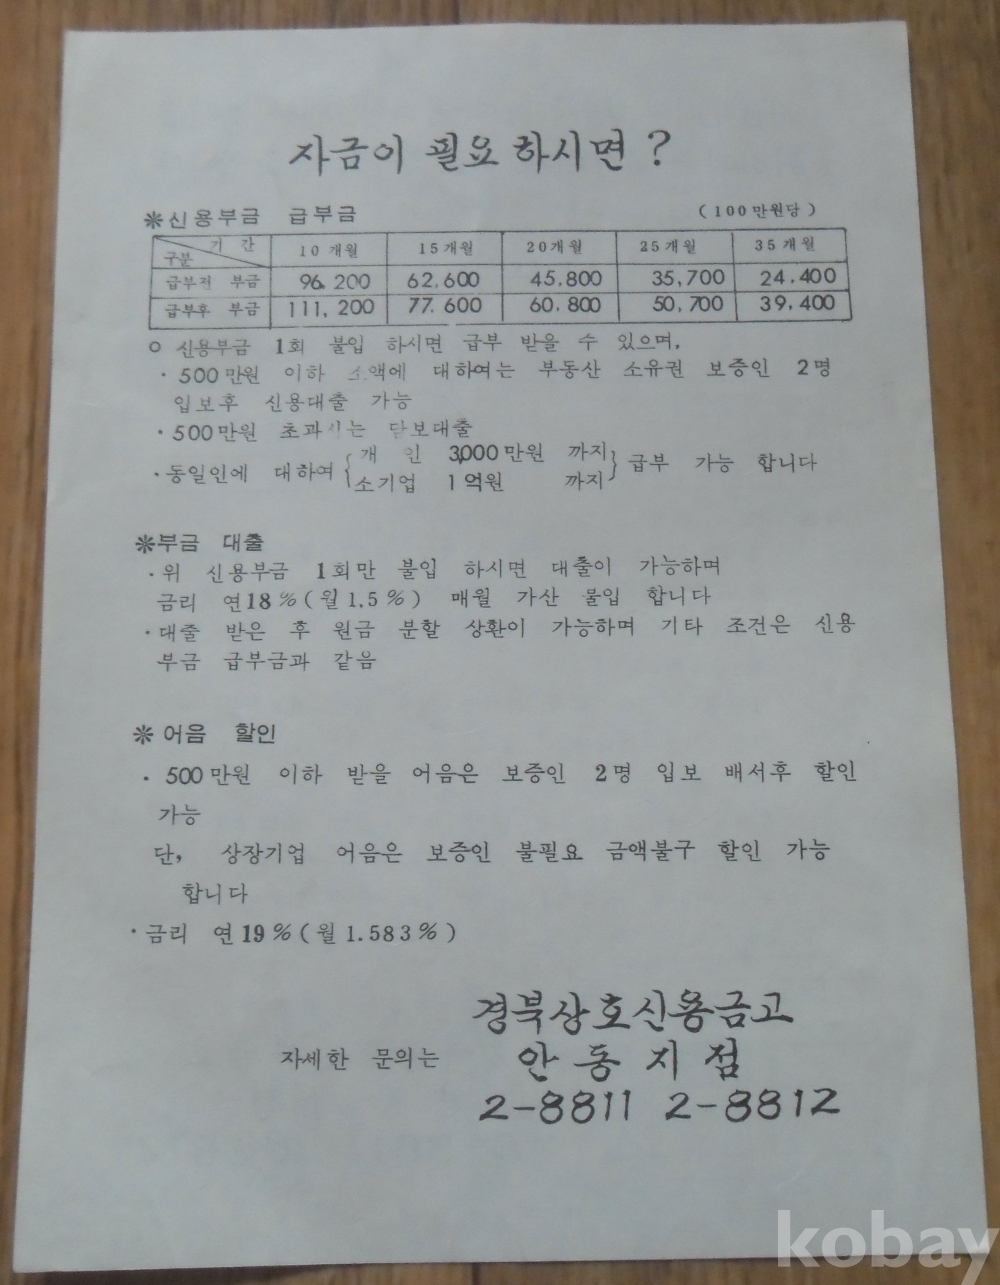 자금이 필요 하시면 ?
※신용부금 급부금 ( 100 만원당 )
기 간 구분 10 개월 15 개월 20 개월 25 개월 35 개월
급부전 부금 96.200 62,600 45.800 35,700 24.400
급부후 부금 111,200 77.600 60.800 50,700 39.400
○ 신용부금 1회 불입 하시면 급부 받을 수 있으며,
· 500 만원 이하 소액에 대하여는 부동산 소유권 보증인 2 명
입보후 신용대출 가능
· 500 만원 초과시는 담보대출
· 동일인에 대하여 { 개 인 3,000 만원 까지 } 급부 가능 합니다
소기업 1 억원 까지
※부금 대출
· 위 신용부금 1회만 불입 하시면 대출이 가능하며
금리 연 18 % ( 월 1.5 % ) 매월 가산 불입 합니다
· 대출 받은 후 원금 분할 상환이 가능하며 기타 조건은 신용
부금 급부금과 같음
※ 어음 할인
· 500 만원 이하 받을 어음은 보증인 2 명 입보 배서후 할인
가능
단, 상장기업 어음은 보증인 불필요 금액불구 할인 가능
합니다
· 금리 연 19 % ( 월 1.583 % )
경북상호신용금고
자세한 문의는 안 동 지 점
2-8811 2-8812
kobay